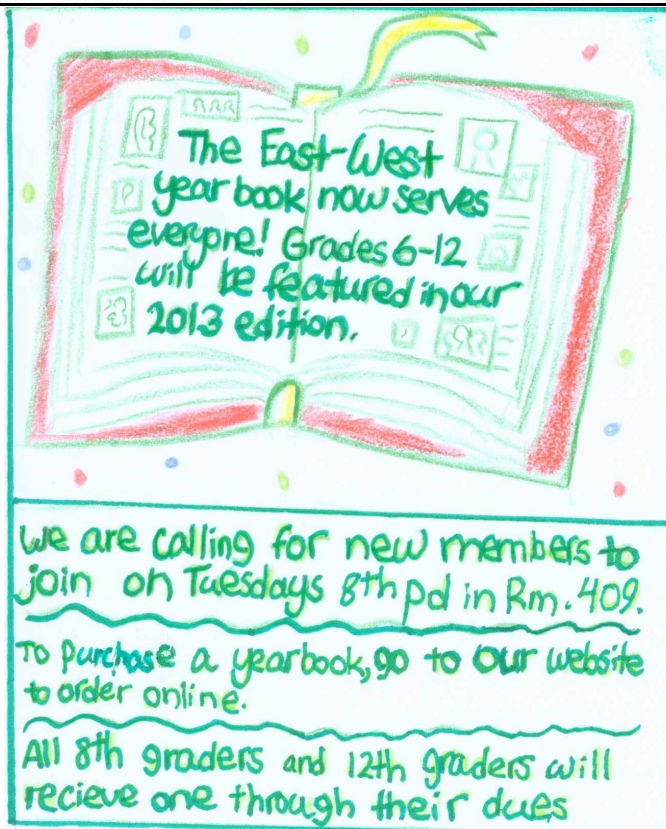 The East-West
year book now serves
everyone! Grades 6-12
will be featured in our
2013 edition.
We are calling for new members to
join on Tuesdays 8th pd in Rm. 409.
To purchase a yearbook, go to our website
to order online.
All 8th graders and 12th graders will
recieve one through their dues